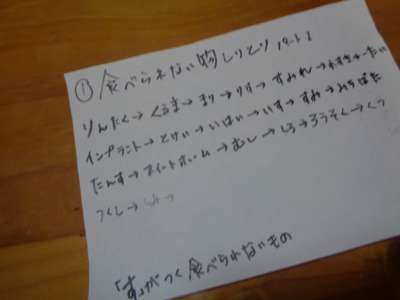 ① 食べられない物しりとり パート1
りんたく→くるま→まり→りす→すみれ→
インプラント→とけい→いはい→いす→すみ→みちばた
たんす→スイートホーム→むし→しろ→ろうそく→くつ
つくし→
「す」がつく食べられないもの